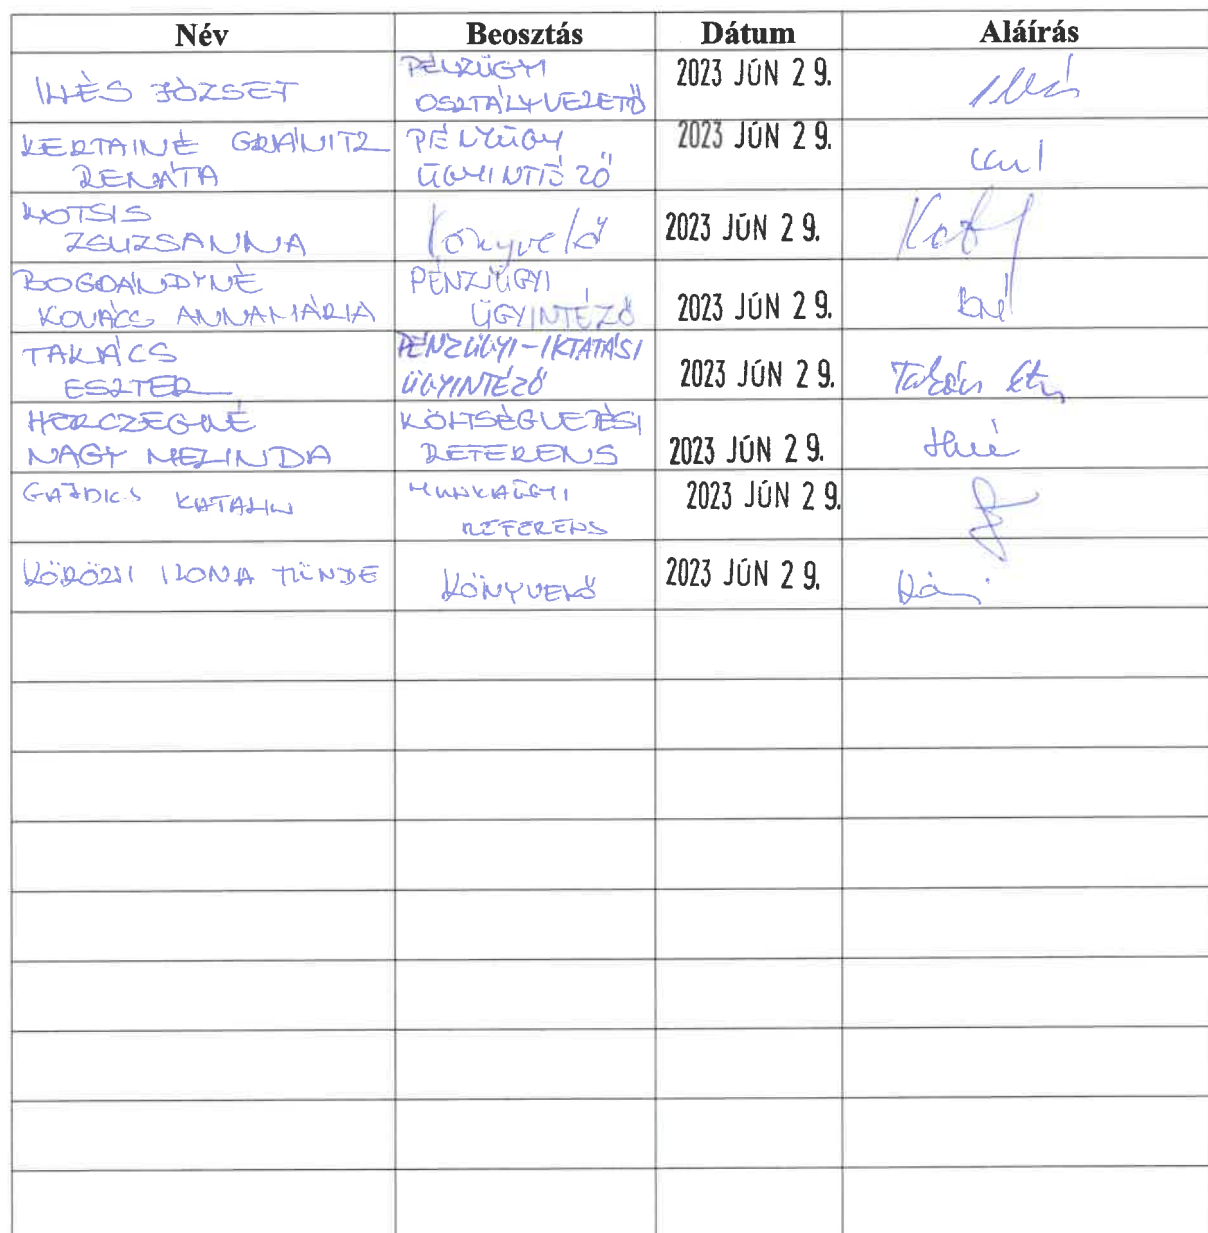 Név Beosztás Dátum Aláírás
ILLÉS JÓZSEF PÉNZÜGYI OSZTÁLYVEZETŐ 2023 JÚN 29.
KERTAINÉ GRÁNITZ RENÁTA PÉNZÜGY ÜGYINTÉZŐ 2023 JÚN 29.
KOTSIS ZSUZSANNA Könyvelő 2023 JÚN 29.
BOGDÁNDYNÉ KOVÁCS ANNAMÁRIA PÉNZÜGYI ÜGYINTÉZŐ 2023 JÚN 29.
TAKÁCS ESZTER PÉNZÜGYI-IKTATÁSI ÜGYINTÉZŐ 2023 JÚN 29. Takács
HERCZEGNÉ NAGY MELINDA KÖLTSÉGVETÉSI REFERENS 2023 JÚN 29.
GAJDICS KATALIN MUNKAÜGYI REFERENS 2023 JÚN 29.
KÖRÖZSI ILONA TÜNDE KÖNYVELŐ 2023 JÚN 29.